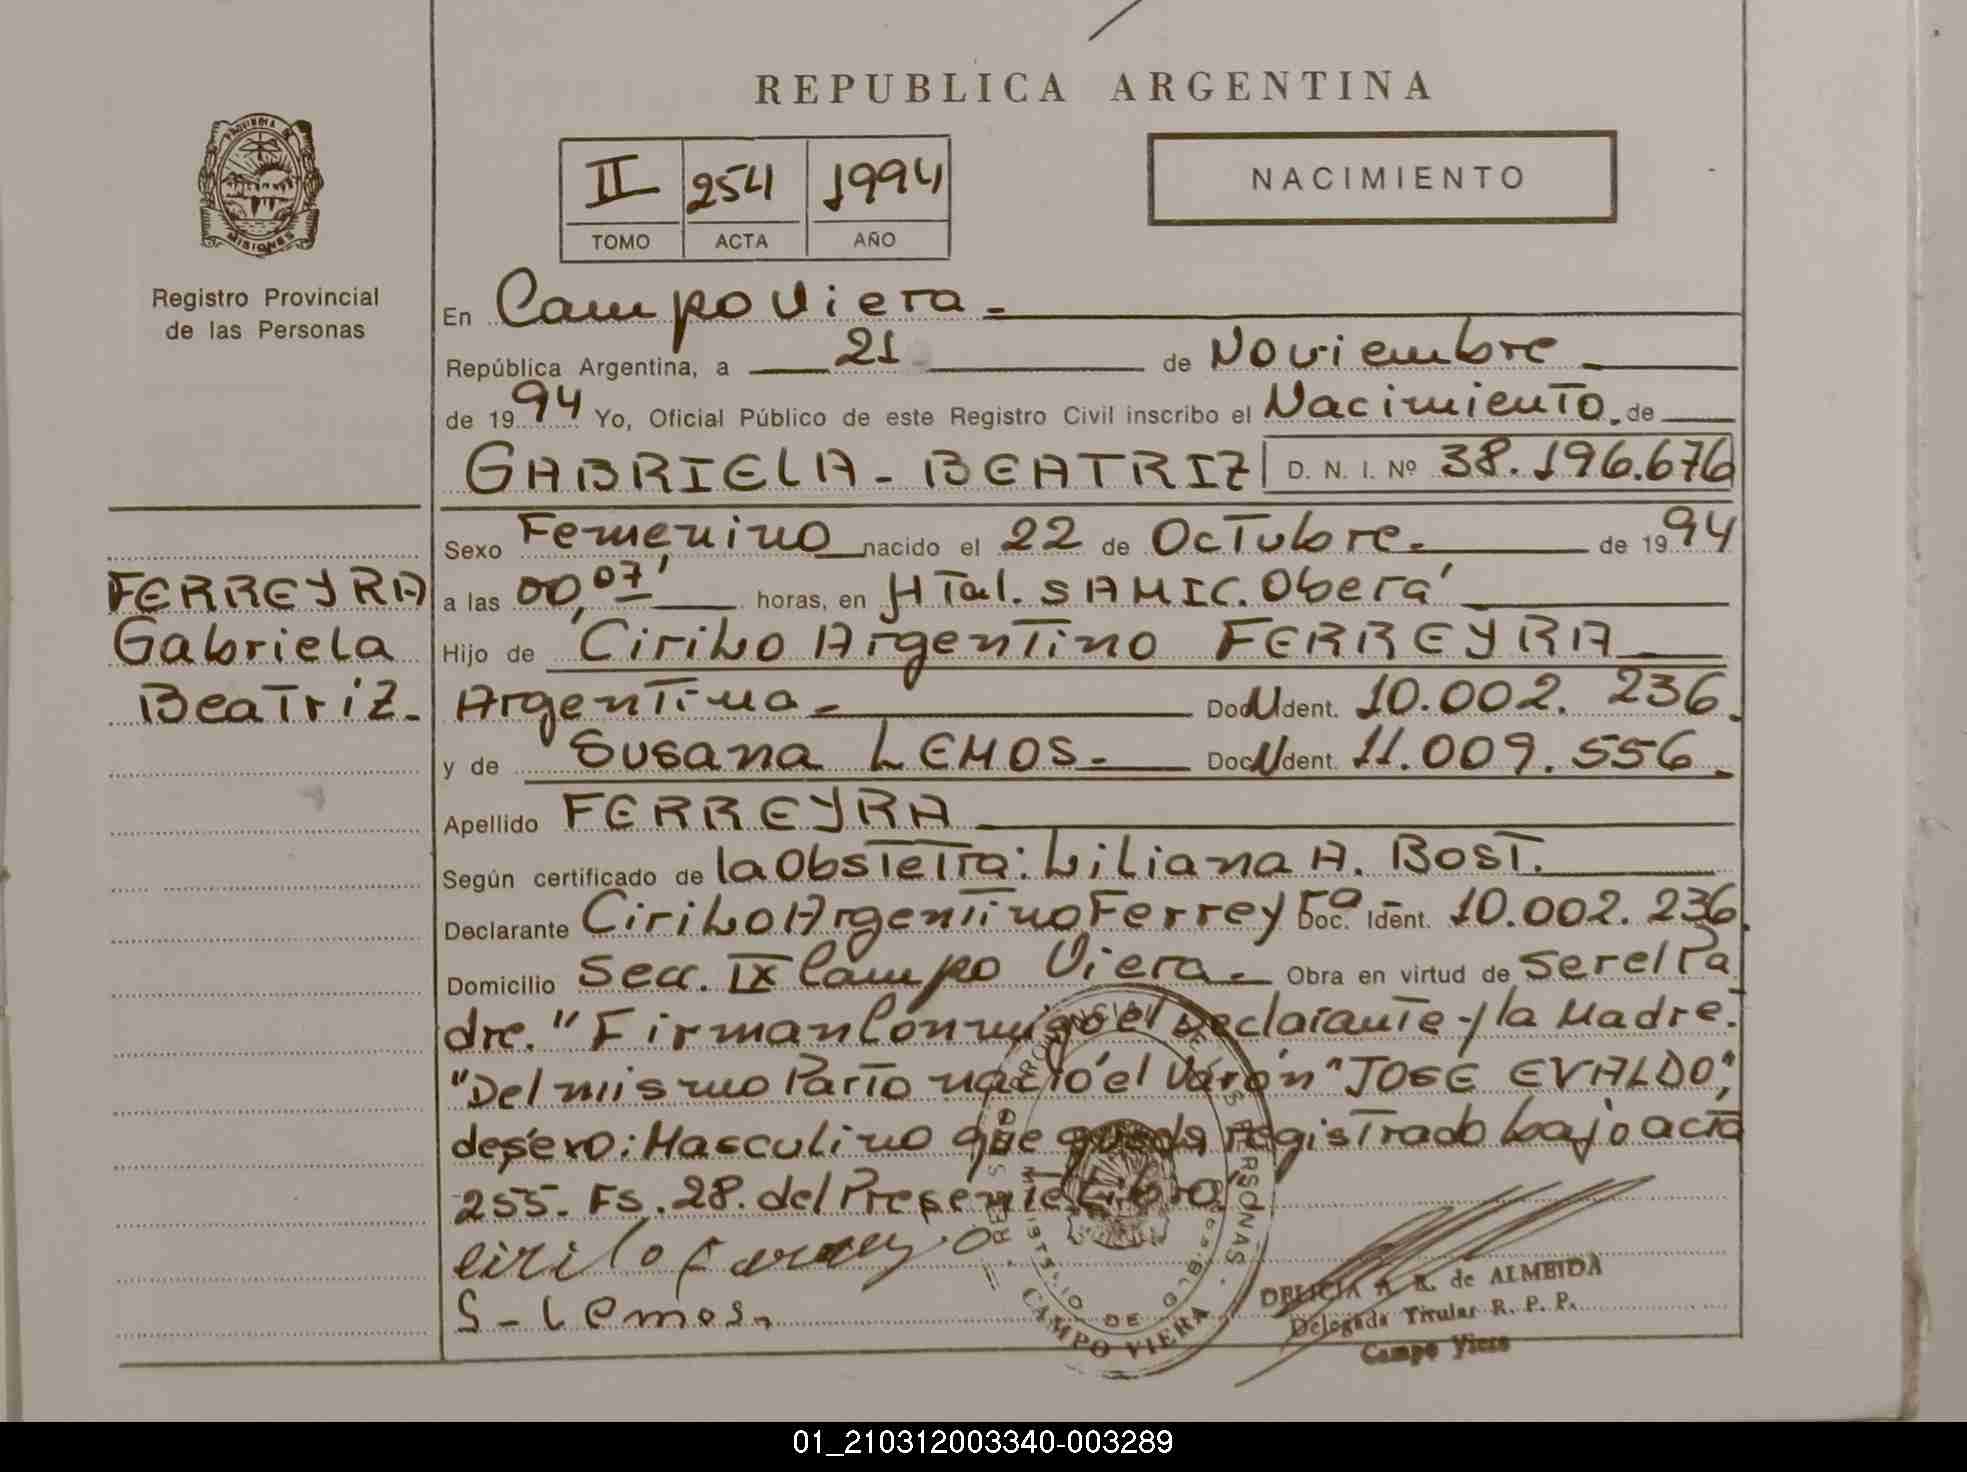 REPUBLICA ARGENTINA
PROVINCIA DE
MISIONES
Registro Provincial
de las Personas
II 254 1994
TOMO ACTA AÑO
NACIMIENTO
En Campo Viera -
República Argentina, a 21 de Noviembre
de 1994 Yo, Oficial Público de este Registro Civil inscribo el Nacimiento. de
GABRIELA - BEATRIZ D. N. I. Nº 38.196.676
Sexo Femenino nacido el 22 de Octubre. de 1994
a las 00,07' horas, en HTal. SAMIC. Oberá
Hijo de Cirilo Argentino FERREYRA
Argentina - Doc. Ident. 10.002.236.
y de Susana LEMOS - Doc. Ident. 11.009.556.
Apellido FERREYRA
Según certificado de la Obstetra: Liliana A. BOST.
Declarante Cirilo Argentino Ferreyra Doc. Ident. 10.002.236.
Domicilio Secc. IX Campo Viera - Obra en virtud de ser el Pa
dre." Firman Conmigo el Declarante y la Madre.
"Del mismo Parto nació el Varón "JOSE EVALDO",
de sexo: Masculino que queda registrado bajo acta
255. Fs. 28. del Presente Libro"
FERREYRA
Gabriela
Beatriz.
S - Lemos.
CAMPO VIERA
DELICIA A. R. de ALMEIDA
Delegada Titular R. P. P.
Campo Viera
01_210312003340-003289